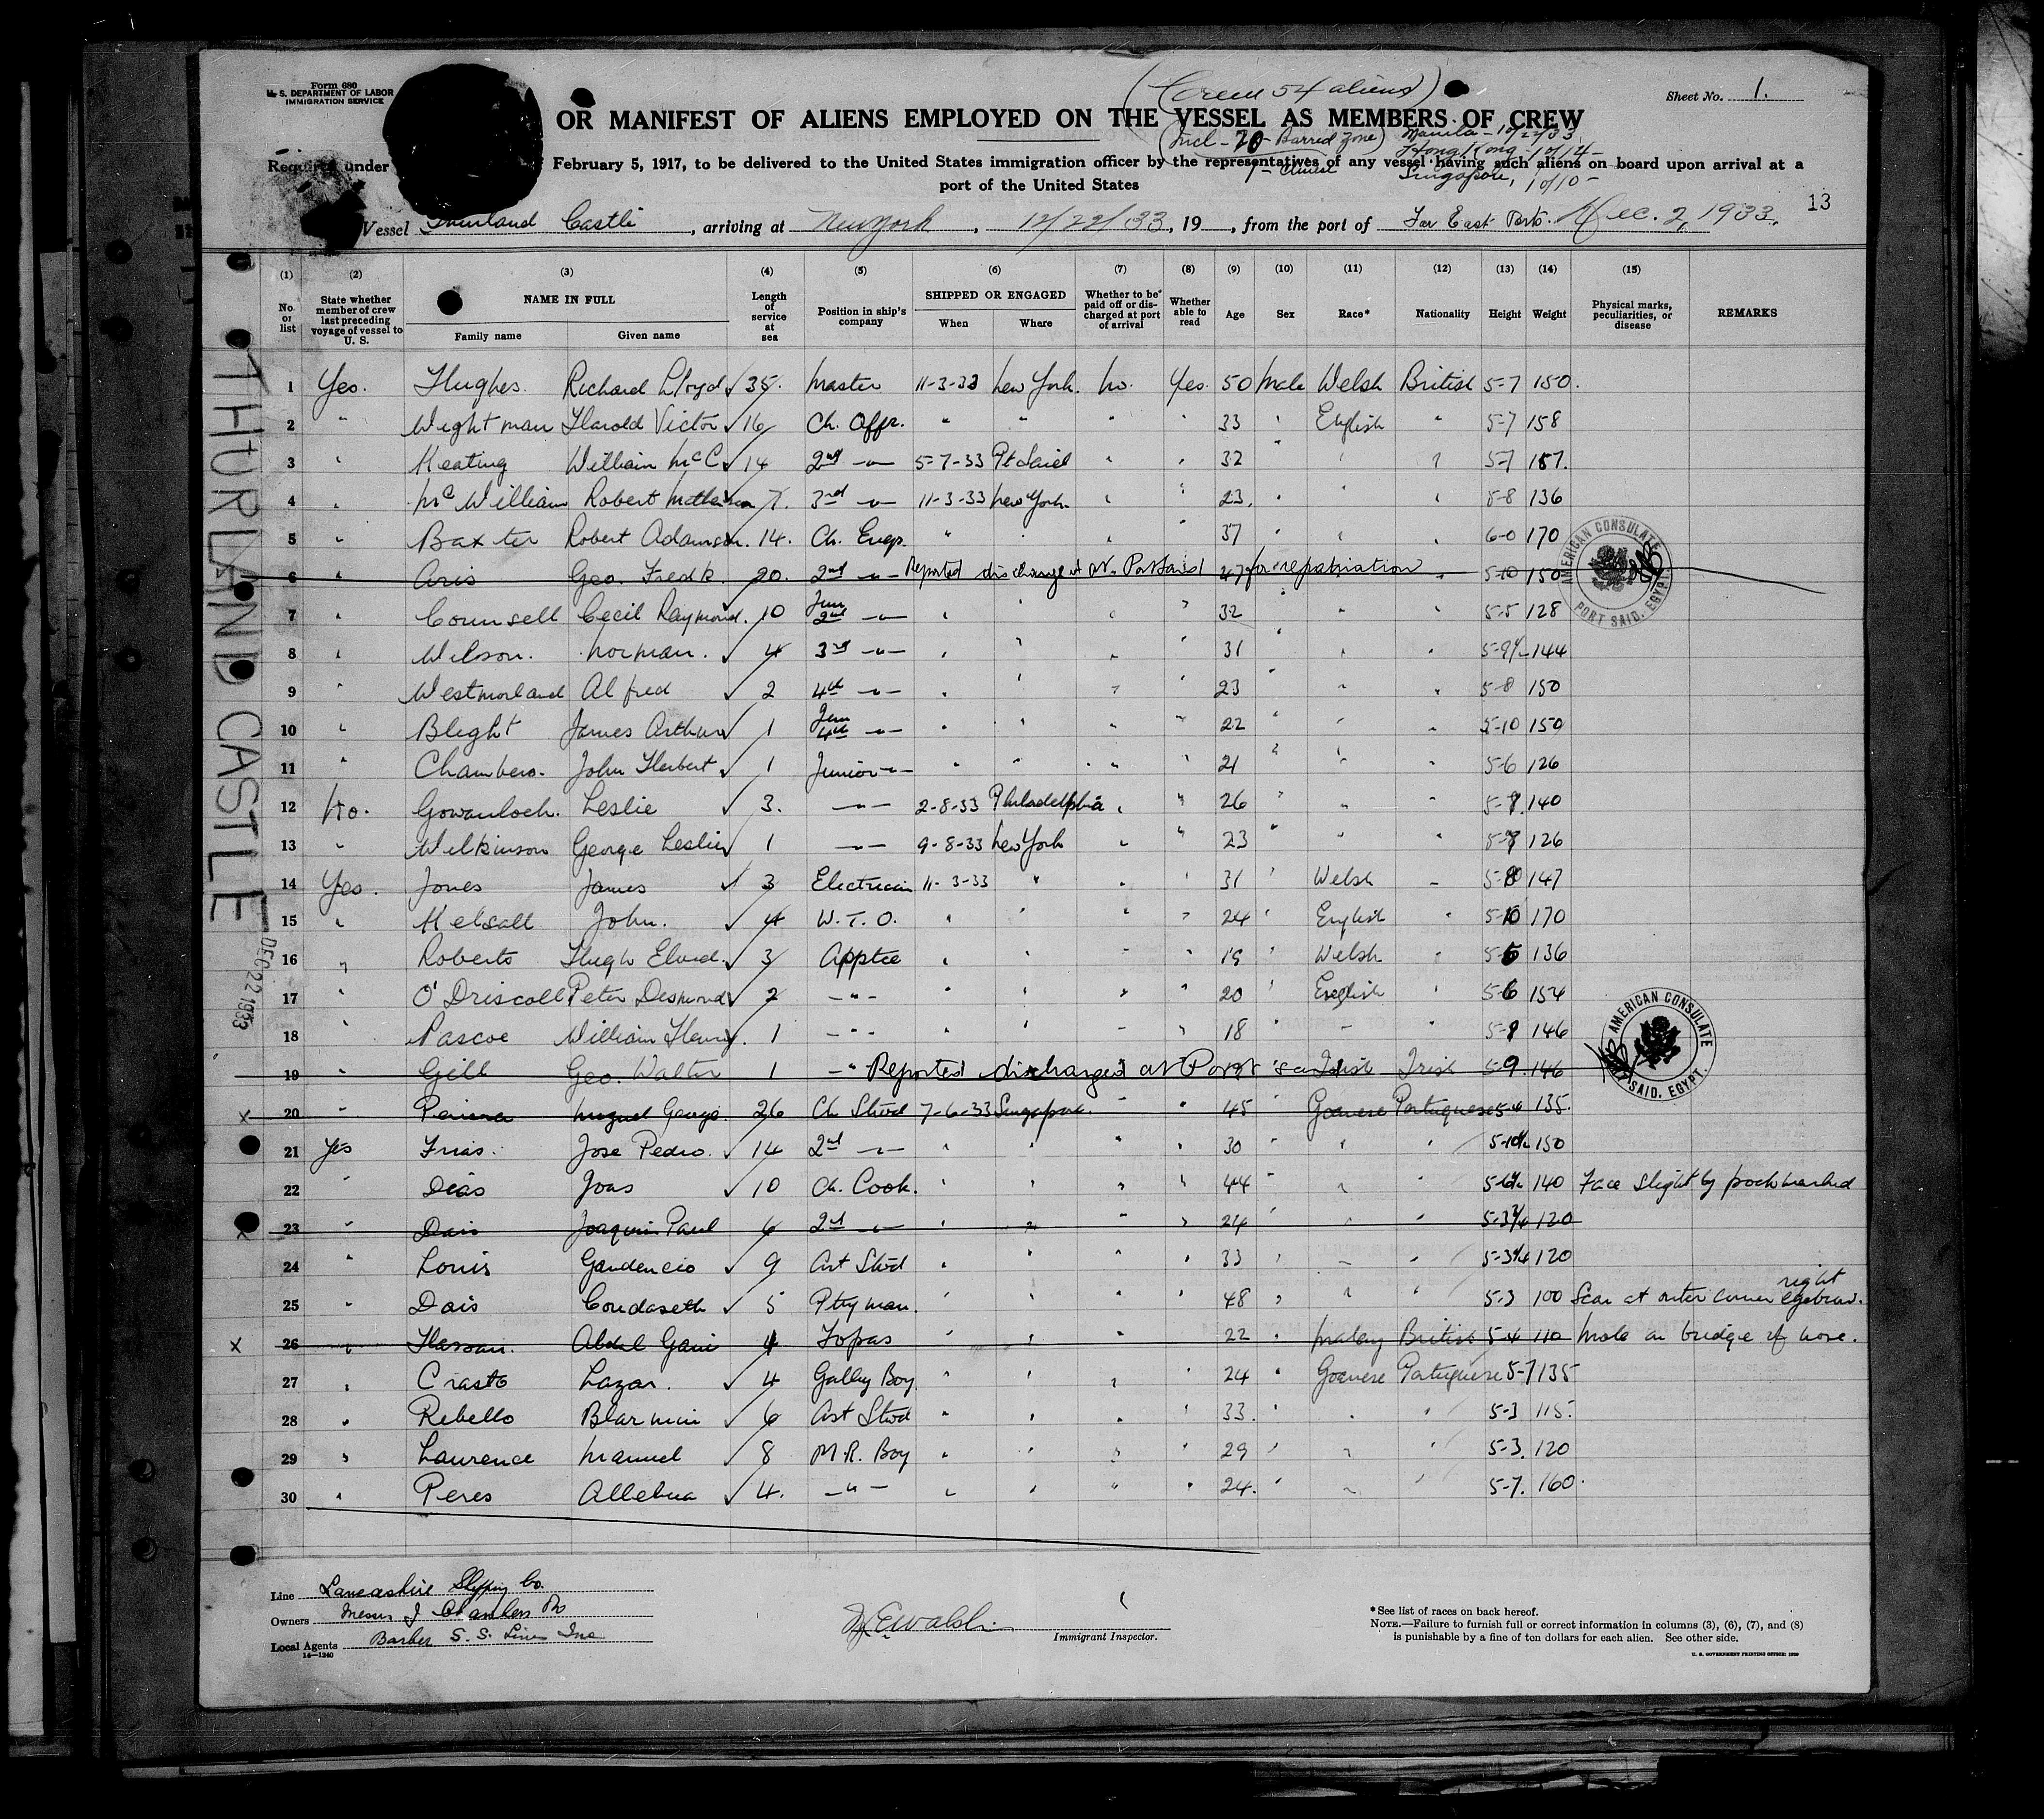 Form 680
U. S. DEPARTMENT OF LABOR
IMMIGRATION SERVICE
(Crew 54 aliens)
Sheet No. 1.
OR MANIFEST OF ALIENS EMPLOYED ON THE VESSEL AS MEMBERS OF CREW
(Incl - 20 - Barred Zone)
Manila - 10/22/33
Hong Kong - 10/14 -
Singapore, 10/10 -
Required under February 5, 1917, to be delivered to the United States immigration officer by the representatives of any vessel having such aliens on board upon arrival at a
port of the United States
13
Vessel Thurland Castle, arriving at New York, 12/22/33, 19 , from the port of Far East Ports. Dec. 2, 1933.
(1) (2) (3) (4) (5) (6) (7) (8) (9) (10) (11) (12) (13) (14) (15)
No. on list
State whether member of crew last preceding voyage of vessel to U. S.
NAME IN FULL
Family name Given name
Length of service at sea
Position in ship's company
SHIPPED OR ENGAGED
When Where
Whether to be paid off or discharged at port of arrival
Whether able to read
Age Sex Race* Nationality Height Weight
Physical marks, peculiarities, or disease
REMARKS
1 Yes. Hughes. Richard Lloyd ✓ 35. Master 11-3-33 New York. No. Yes. 50 Male Welsh British 5-7 150.
2 " Wightman Harold Victor ✓ 16 Ch. Offr. " " " " 33 " English " 5-7 158
3 " Keating William McC ✓ 14 2nd -"- 5-7-33 Pt Said " " 32 " " " 5-7 157.
4 " McWilliam Robert 7. 3rd -"- 11-3-33 New York. " " 23. " " " 5-8 136
5 " Baxter Robert Adamson. 14. Ch. Engr. " " " " 37 " " " 6-0 170
6 " Aris Geo. Fredk. 20. 2nd -"- Reported discharged at Port Said 47 for repatriation " 5-10 150
7 " Counsell Cecil Raymond. 10 Jun 2nd -"- " " " " 32 " " " 5-5 128
8 " Wilson. Norman. ✓ 4 3rd -"- " " " " 31 " " " 5-9½ 144
9 " Westmorland Alfred ✓ 2 4th -"- " " " " 23 " " " 5-8 150
10 " Blight James Arthur ✓ 1 Jun 4th -"- " " " " 22 " " " 5-10 150
11 " Chambers. John Herbert ✓ 1 Junior -"- " " " " 21 " " " 5-6 126
12 No. Gowanloch. Leslie ✓ 3. -"- 2-8-33 Philadelphia " " 26 " " " 140
13 " Wilkinson George Leslie ✓ 1 -"- 9-8-33 New York " " 23 " " " 126
14 Yes. Jones James ✓ 3 Electrician 11-3-33 " " " 31 " Welsh " 147
15 " Kelsall John. ✓ 4 W. T. O. " " " " 24 " English " 5-10 170
16 " Roberts Hugh ✓ 3 Apptce " " " " 19 " Welsh " 136
17 " O'Driscoll Peter Desmond ✓ 2 -"- " " " " 20 " English " 5-6 154
18 " Pascoe William Henry. 1 -"- " " " " 18 " " " 146
19 " Gill Geo. Walter 1 -"- Reported discharged at Port Said Irish Irish 5-9. 146
x 20 " Miguel George. 26 Ch Stwd 7-6-33 Singapore. " " 45 " Goanese Portuguese 5-4 135.
21 Yes Frias. Jose Pedro. ✓ 14 2nd -"- " " " " 30 " " " 150
22 " Dias Joas ✓ 10 Ch. Cook. " " " " 44 " " " 140 Face slightly pockmarked
x 23 " Dais Joaquim Paul 6 2nd -"- " " " " 24 " " " 5-3¾ 120
24 " Louis Gaudencio ✓ 9 Ast Stwd " " " " 33 " " " 120
25 " Dais ✓ 5 Ptryman. " " " " 48 " " " 5-3 100 Scar at outer corner right eyebrow.
x 26 " Hassan. Abdul Gani 4 Topas " " " 22 " Malay British 5-4 110 Mole on bridge of nose.
27 " Crasto Lazar. ✓ 4 Galley Boy. " " " " 24 " Goanese Portuguese 5-7 135
28 " Rebello ✓ 6 Ast Stwd " " " " 33. " " " 5-3 115.
29 " Laurence Manuel ✓ 8 M.R. Boy " " " " 29 " " " 5-3. 120
30 " Peres ✓ 4. -"- " " " " 24. " " " 5-7. 160.
THURLAND CASTLE
DEC 22 1933
AMERICAN CONSULATE
PORT SAID, EGYPT.
AMERICAN CONSULATE
SAID, EGYPT.
Line Lancashire Shipping Co.
Owners Messrs J Chambers
Local Agents Barber S. S. Lines Inc
14—1240
Immigrant Inspector.
*See list of races on back hereof.
NOTE.—Failure to furnish full or correct information in columns (3), (6), (7), and (8)
is punishable by a fine of ten dollars for each alien. See other side.
U. S. GOVERNMENT PRINTING OFFICE: